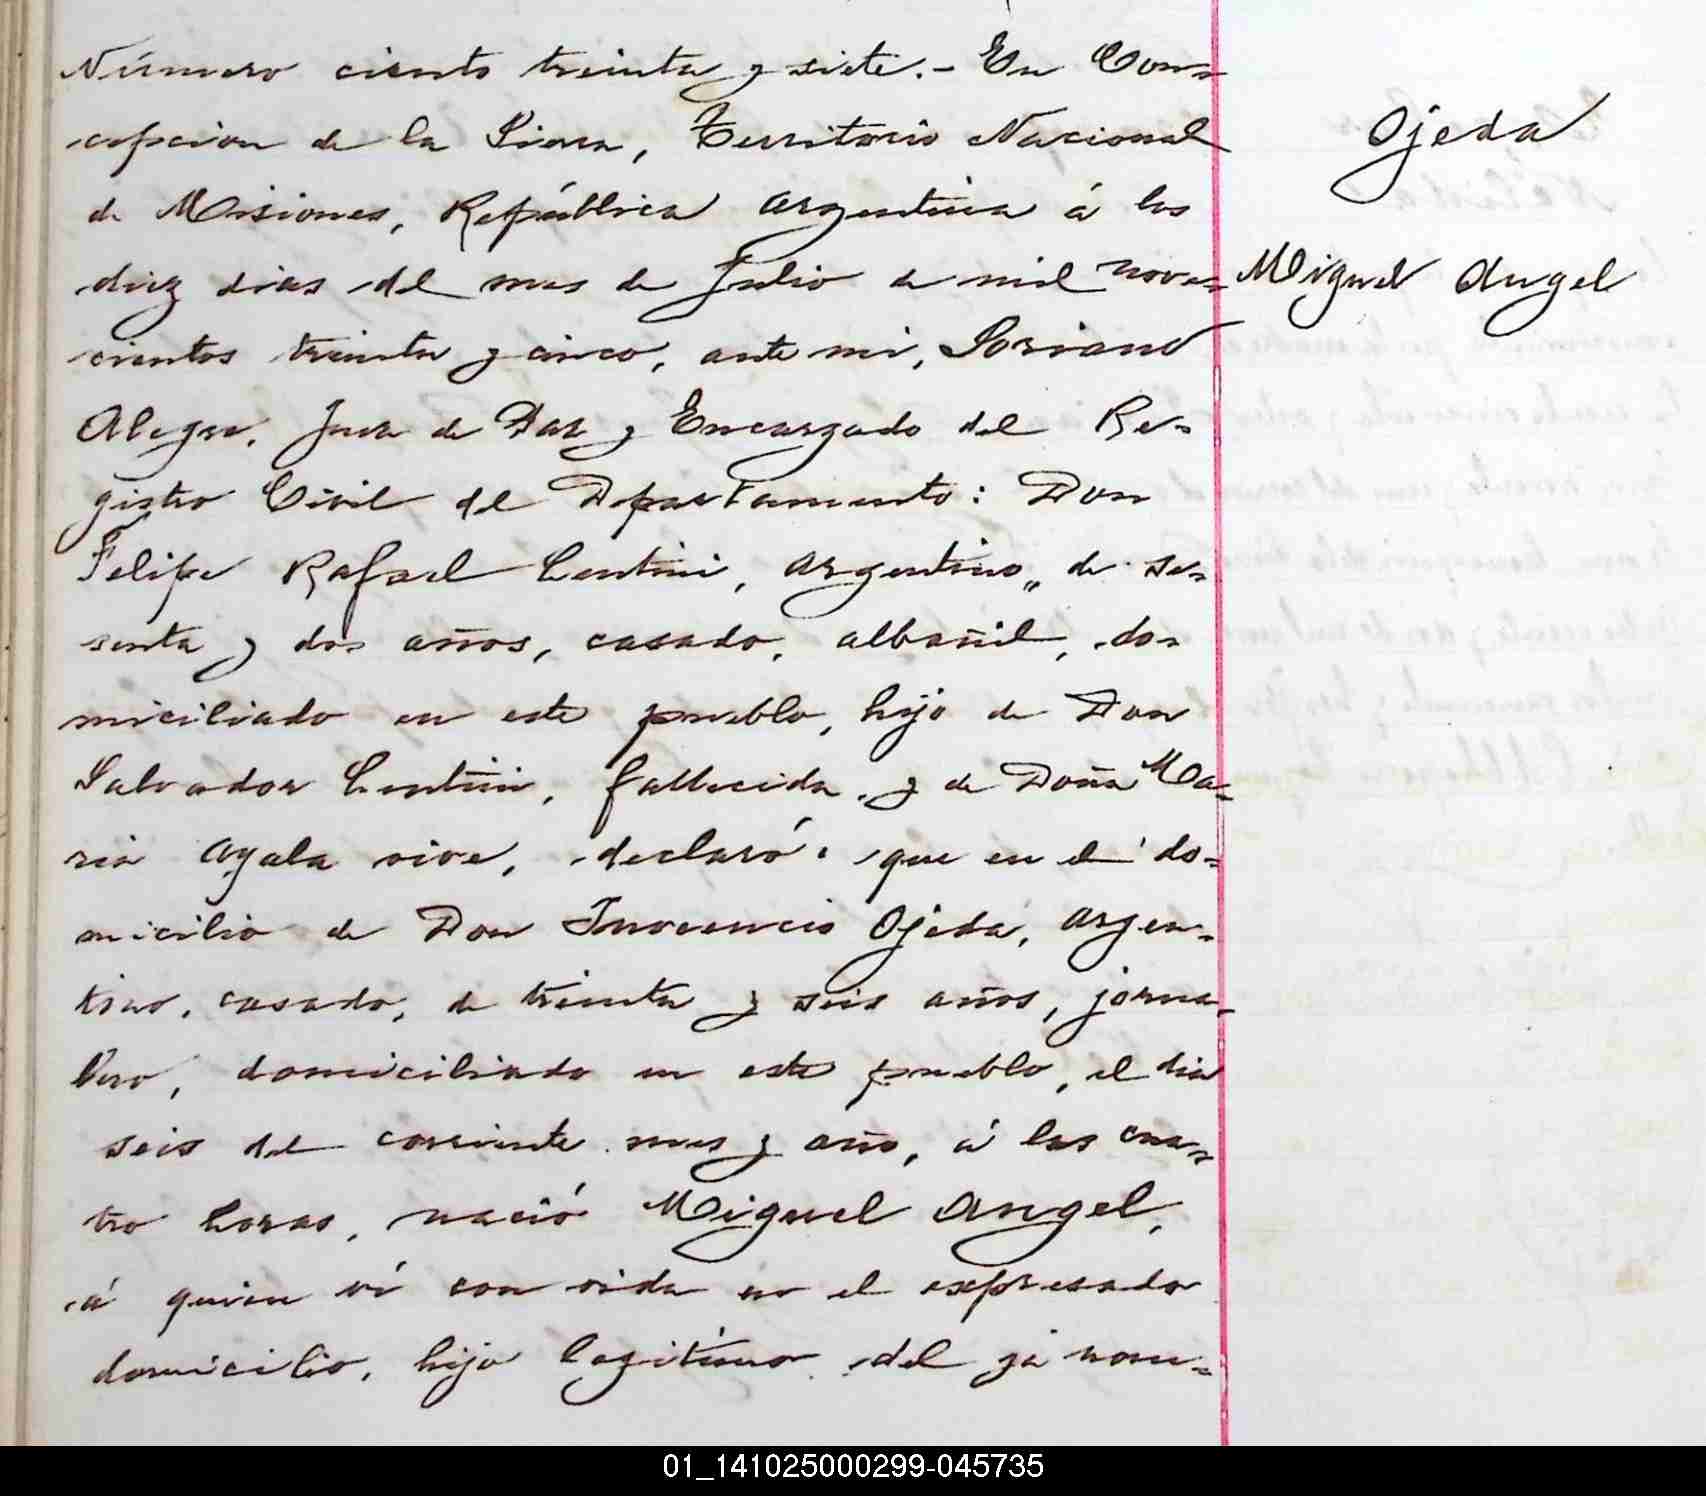 Número ciento treinta y siete.- En Con-
cepcion de la Sierra, Territorio Nacional
de Misiones, República Argentina á los
diez dias del mes de Julio de mil nove-
cientos treinta y cinco, ante mi, Soriano
Alegre, Juez de Paz y Encargado del Re-
gistro Civil del Departamento: Don
Felipe Rafael Lentini, argentino, de se-
senta y dos años, casado, albañil, do-
miciliado en este pueblo, hijo de Don
Salvador Lentini, fallecido, y de Doña Ma-
ria Ayala vive, declaró: que en el do-
micilio de Don Inocencio Ojeda, argen-
tino, casado, de treinta y seis años, jorna-
lero, domiciliado en este pueblo, el dia
seis del corriente mes y año, á las cua-
tro horas, nació Miguel Angel,
á quien ví con vida en el expresado
domicilio, hijo legítimo del yá nom-
Ojeda
Miguel Angel
01_141025000299-045735